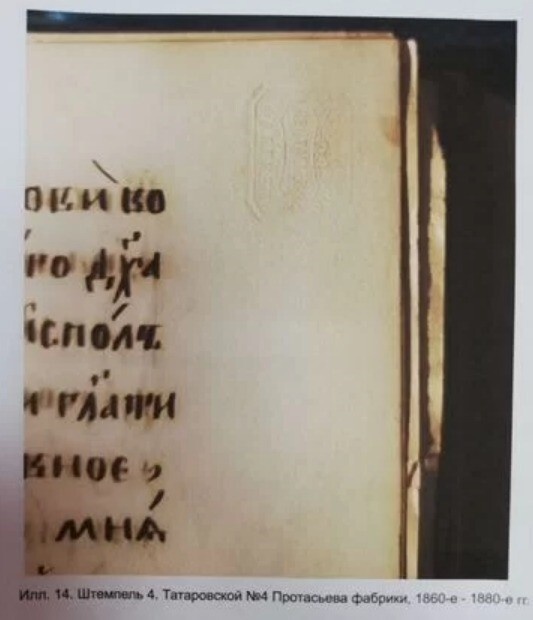 ови ко
го дх҃а
исполꙗ
и глаши
вное ,
мна́
Илл. 14. Штемпель 4. Татаровской №4 Протасьева фабрики, 1860-е - 1880-е гг.